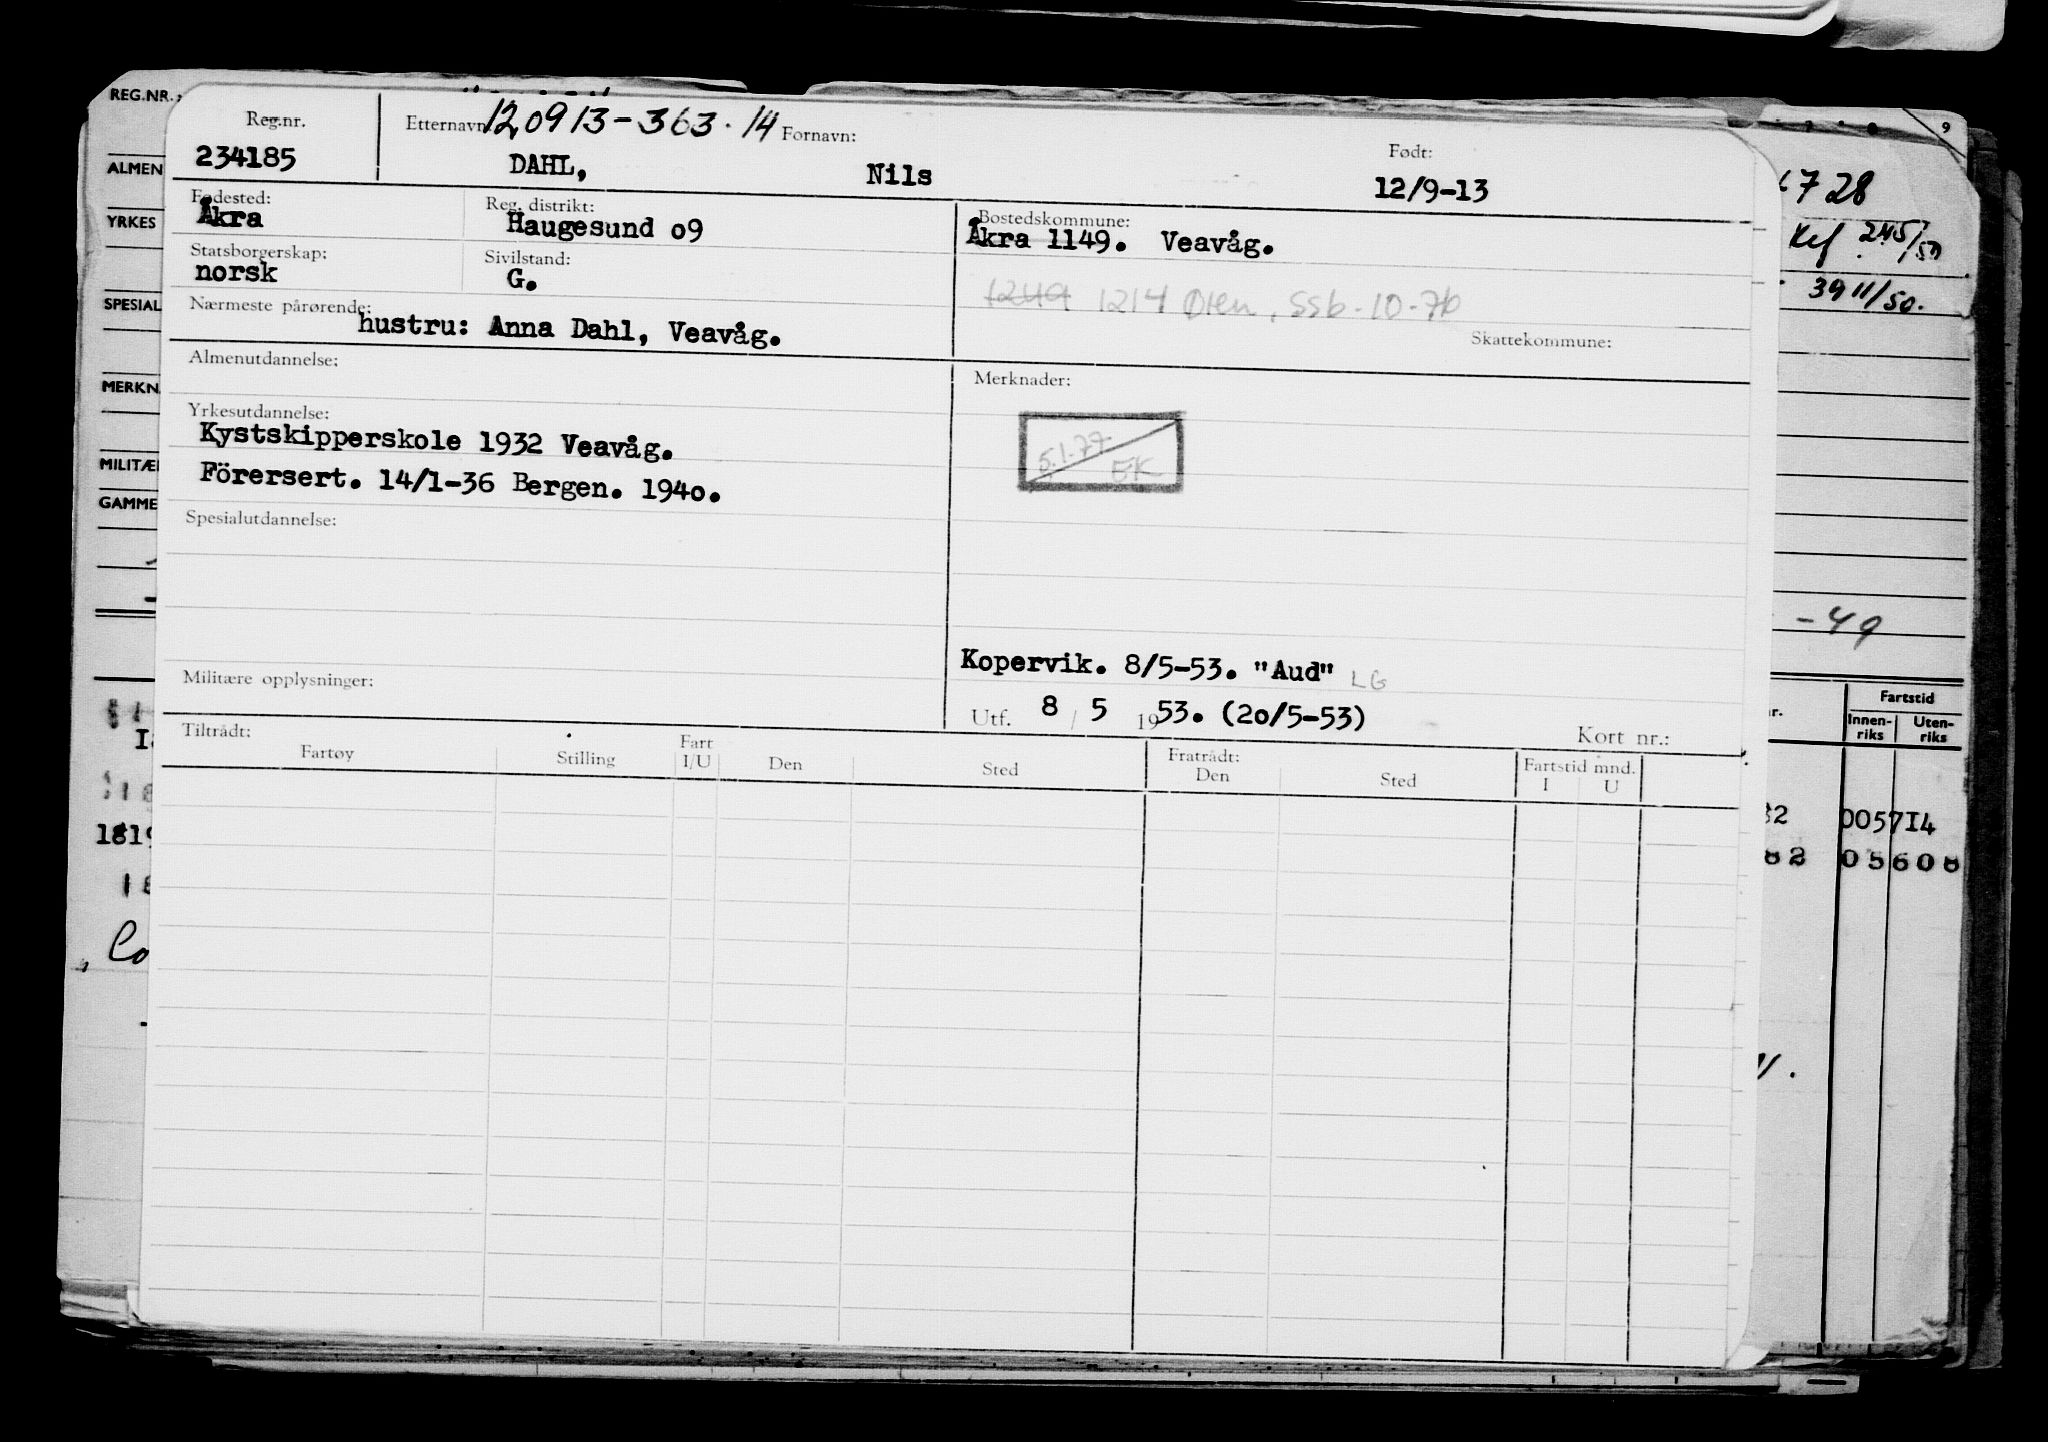 REG.NR.:
ALMEN
YRKES
SPESIAL
MERKN
MILITÆ
GAMME
Reg.nr. Etternavn 120913-363.14 Fornavn: Født:
234185 DAHL, Nils 12/9-13
Fødested: Reg. distrikt: Bostedskommune:
Åkra Haugesund o9 Åkra 1149. Veavåg.
Statsborgerskap: Sivilstand:
norsk G.
1249 1214 Ølen, SSb-10-76
Nærmeste pårørende:
hustru: Anna Dahl, Veavåg.
Skattekommune:
Almenutdannelse: Merknader:
Yrkesutdannelse:
Kystskipperskole 1932 Veavåg.
5.1.77 EK
Förersert. 14/1-36 Bergen. 194o.
Spesialutdannelse:
Kopervik. 8/5-53. "Aud" LG
Militære opplysninger:
Utf. 8 / 5 1953. (2o/5-53) Kort nr.:
Tiltrådt: Fratrådt:
Fartøy Stilling Fart I/U Den Sted Den Sted Fartstid mnd. I U
9
728
Kef 245/50
3911/50.
-49
Fartstid
Innen-riks Uten-riks
32 005714
82 05608